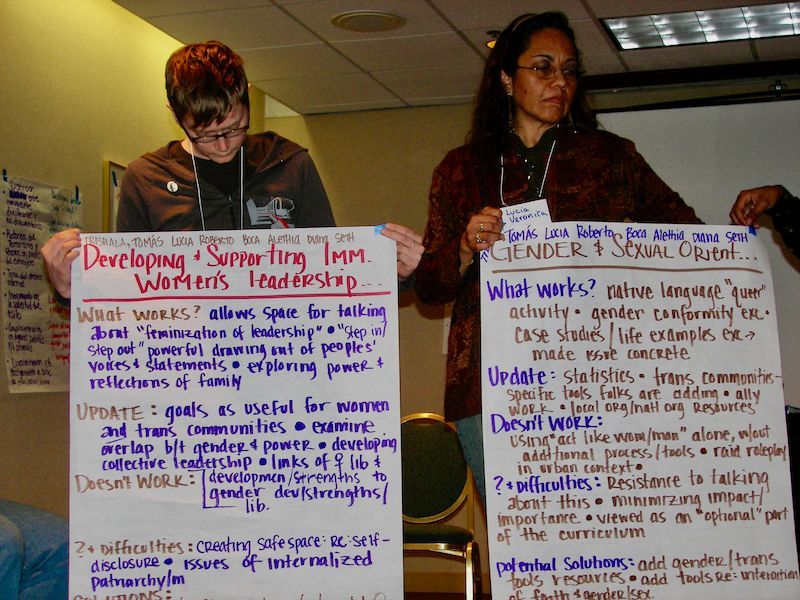 TRISHALA, TOMÁS LUCIA ROBERTO BOCA Alethia Diana Seth
Developing & Supporting Imm...
Women's leadership...
What works? allows space for talking
about "feminization of leadership" • "step in/
step out" powerful drawing out of peoples'
voices & statements • exploring power &
reflections of family
UPDATE: goals as useful for women
and trans communities • examine
overlap b/t gender & power • developing
collective leadership • links of ♀ lib &
Doesn't work: developmen/strengths to
gender dev/strengths/
lib.
? & Difficulties: creating safe space: re: self-
disclosure • issues of internalized
patriarchy/m
SOLUTIONS:
Lucia
Veronica
Tomás Lucia Roberto Boca Alethia Diana Seth
GENDER & Sexual Orient...
What works? native language "queer"
activity • gender conformity exc •
case studies/life examples exc →
made issue concrete
Update: statistics • trans communities-
specific tools folks are adding • ally
work • local org/natl org resources
Doesn't work:
using "act like wom/man" alone, w/out
additional process/tools • raid roleplay
in urban context •
? & Difficulties: Resistance to talking
about this • minimizing impact/
importance • viewed as an "optional" part
of the curriculum
potential Solutions: add gender/trans
tools resources • add tools re: interaction
of faith & gender/sex.